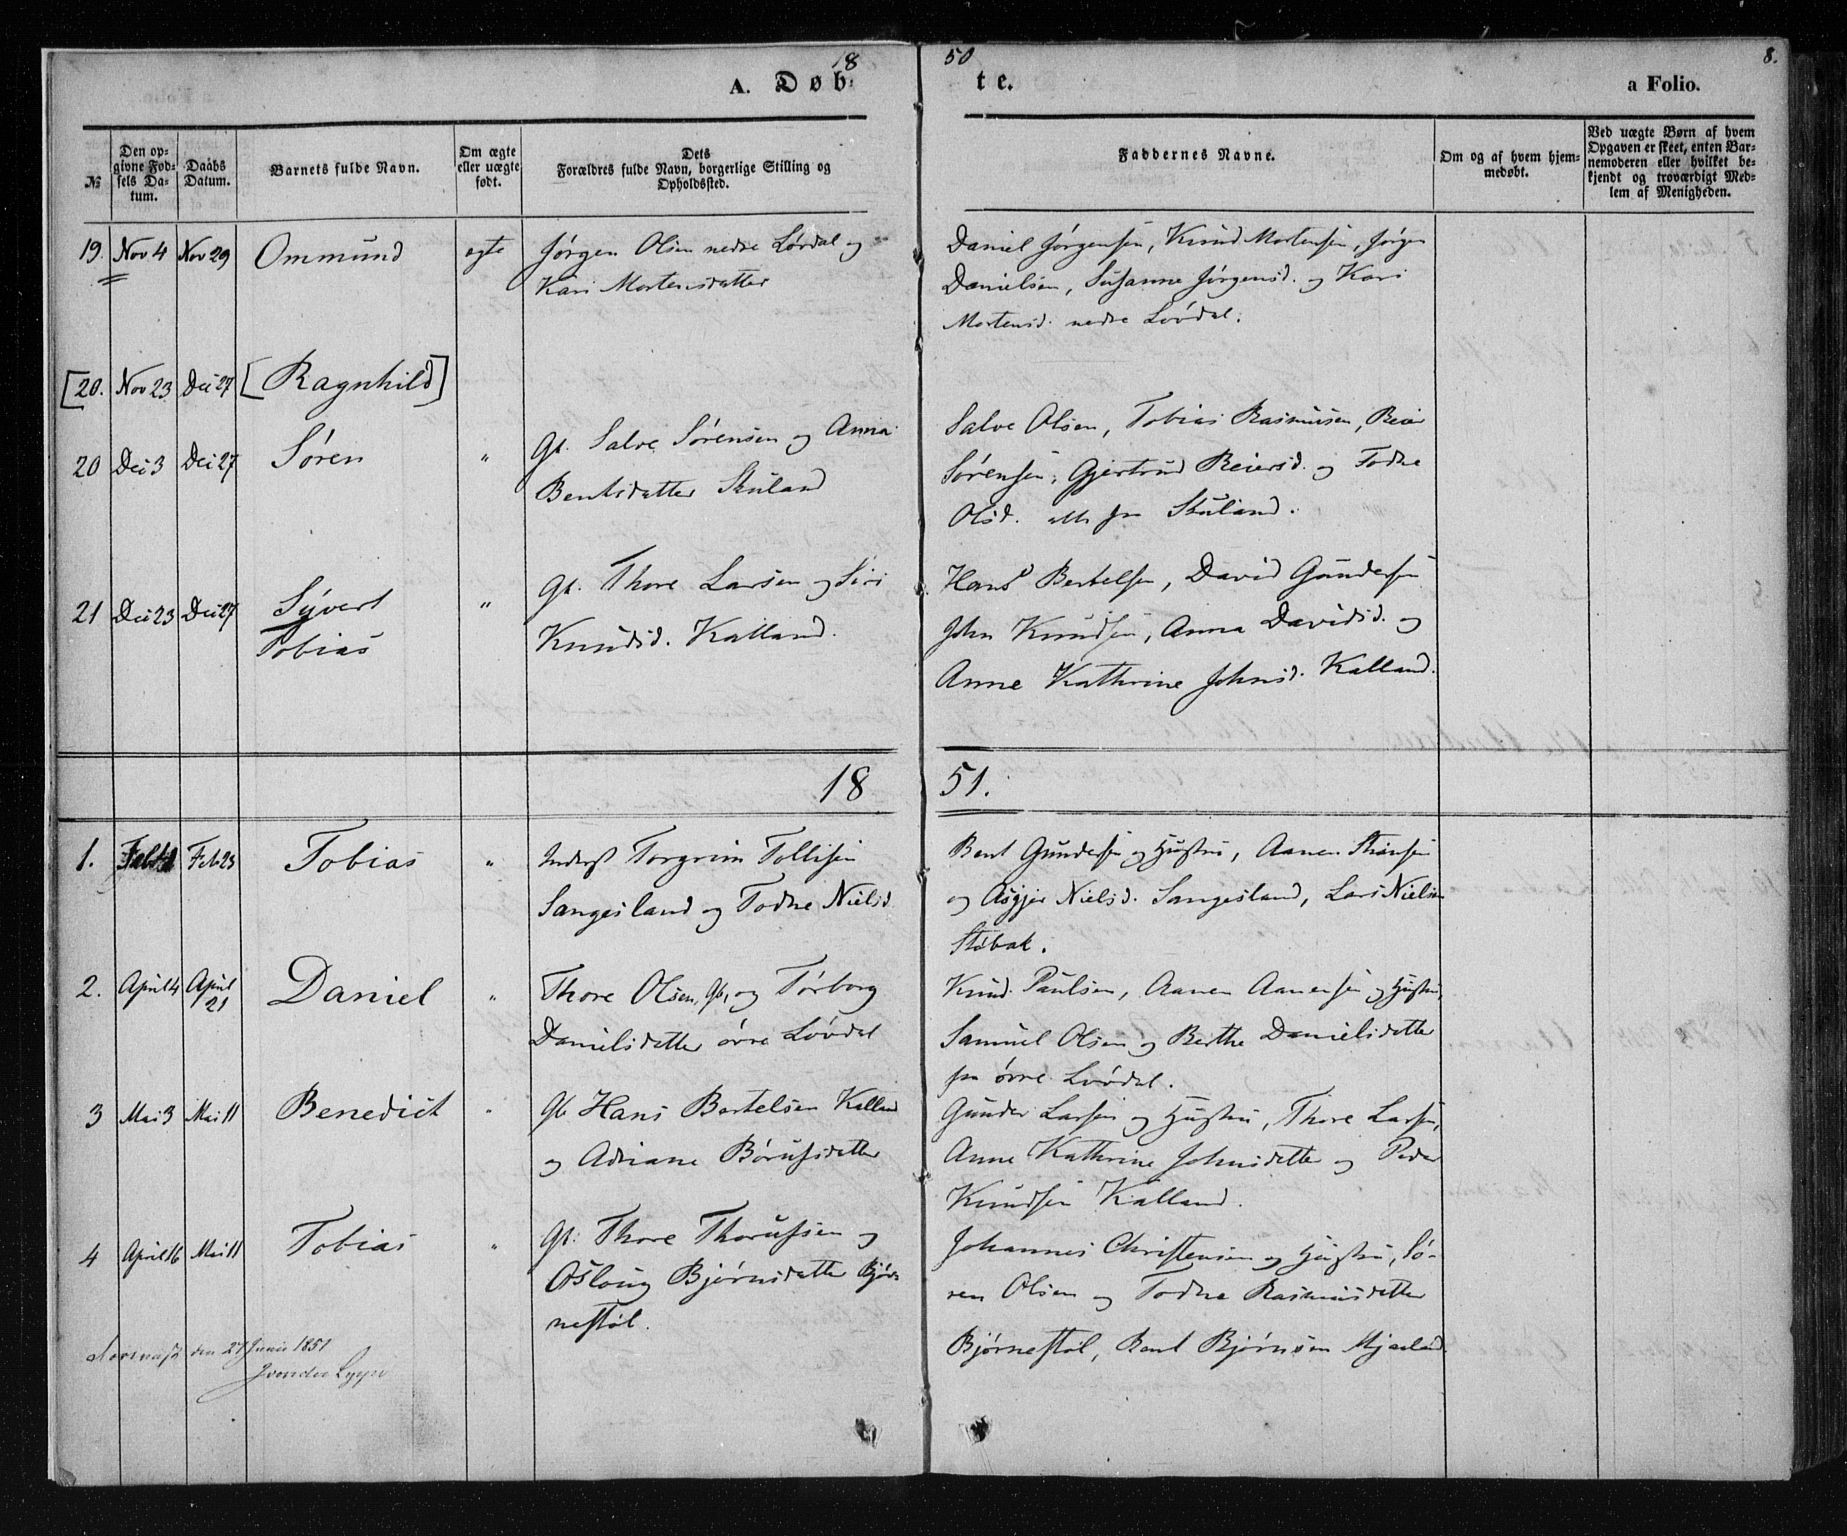 18 50 8.
A. Døb- te. a Folio.
№ Den opgivne Fødsels Datum. Daabs Datum. Barnets fulde Navn. Om ægte eller uægte født. Dets Forældres fulde Navn, borgerlige Stilling og Opholdssted. Faddernes Navne. Om og af hvem hjemmedøbt. Ved uægte Børn af hvem Opgaven er skeet, enten Barnemoderen eller hvilket bekjendt og troværdigt Medlem af Menigheden.
19. Nov 4 Nov 29 Ommund egte Jørgen Olsen nedre Lövdal og
Kari Mortensdatter
Daniel Jørgensen, Knud Mortensen, Jörgen
Danielsen, Susanne Jørgensd. og Kari
Mortensd. nedre Lövdal.
[20. Nov 23 Dec 27 [Ragnhild]
20 Dec 3 Dec 27 Søren " Gb. Salve Sørensen og Anna
Bentsdatter Skuland
Salve Olsen, Tobias Rasmusen, Reier
Sørensen, Gjertrud Reiersd. og Todne
Olsd. alle fra Skuland.
21 Dec 23 Dec 27 Sÿvert
Tobias
" Gb. Thore Larsen og Siri
Knudsd. Kalland.
Hans Bertelsen, David Gundersen
John Knudsen, Anna Davidsd. og
Anne Kathrine Johnsd. Kalland.
18 51.
1. Feb 23 Tobias " Inderst Torgrim Tollisen
Sangesland og Todne Nielsd.
Bent Gundersen og Hustru, Aanen
og Asgjer Nielsd. Sangesland, Lars Nielsen
Støbak.
2. April 4 April
21
Daniel " Thore Olsen, Gb, og Torborg
Danielsdatter övre Lövdal
Knud Paulsen, Aanen Aanensen og Hustru,
Samuel Olsen og Berthe Danielsdatter
fra övre Lövdal.
3 Mai 3 Mai 11 Benedict " Gb Hans Bertelsen Kalland
og Adriane Börufsdatter
Gunder Larsen og Hustru, Thore Larsen,
Anne Kathrine Johnsdatter og Peder
Knudsen Kalland.
4 April 16 Mai 11 Tobias " Gb. Thore Thorufsen og
Osloug Bjørnsdatter Bjør-
nestøl.
Johannes Christensen og Hustru, Sö-
ren Olsen og Todne Rasmusdatter
Bjørnestøl, Bent Bjørnsen
den 27 Junii 1851